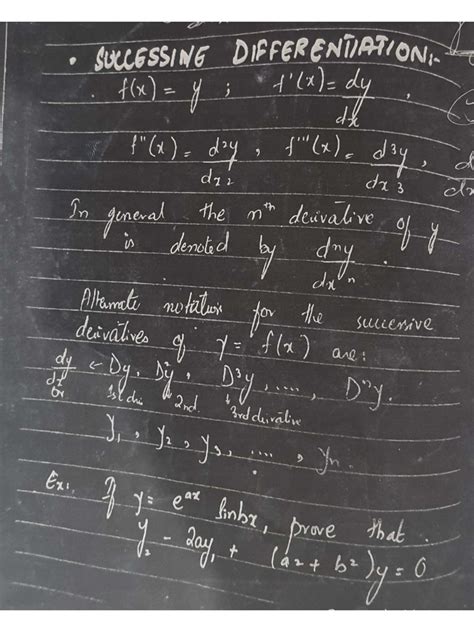 • SUCCESSING DIFFERENTIATION:-
f(x) = y ; f'(x) = dy/dx ,
f''(x) = d²y/dx² , f'''(x) = d³y/dx³ ,
In general the nth derivative of y
is denoted by dⁿy/dxⁿ .
Alternate notation for the successive
derivatives of y = f(x) are:
dy/dx ← Dy, D²y, D³y, ...., Dⁿy.
or 1st div 2nd. 3rd derivative
y₁, y₂, y₃, ...., yₙ.
Ex:. If y = e^ax sinbx, prove that.
y₂ - 2ay₁ + (a² + b²)y = 0